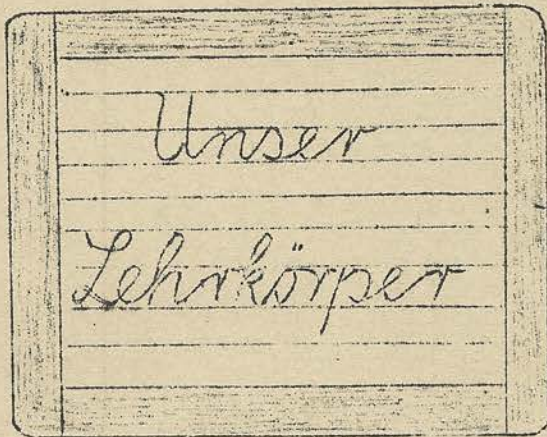 Unser
Lehrkörper